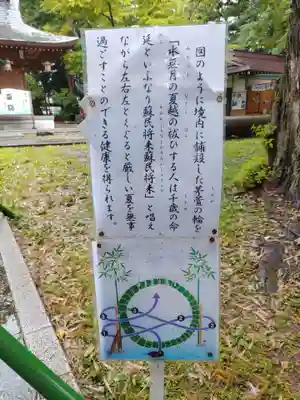 図のように境内に舗設した茅萱の輪を
「水無月の夏越の祓ひする人は千歳の命
延といふなり蘇民将来蘇民将来」と唱え
ながら左右左とくぐると厳しい夏を無事
過ごすことのできる健康を得られます。